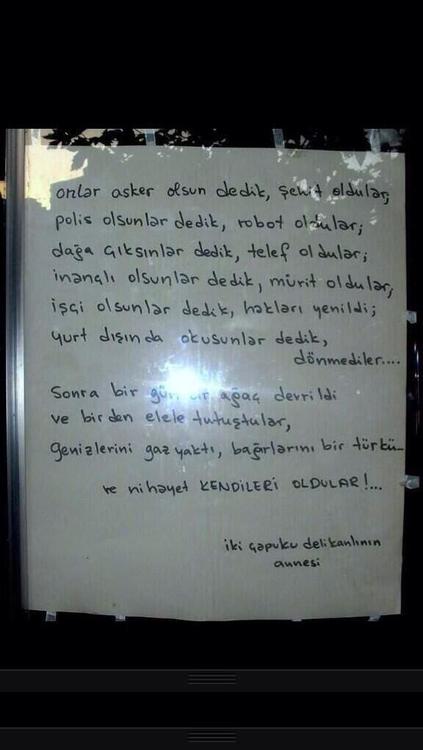 onlar asker olsun dedik, şehit oldular;
polis olsunlar dedik, robot oldular;
dağa çıksınlar dedik, telef oldular;
inançlı olsunlar dedik, mürit oldular,
işçi olsunlar dedik, hakları yenildi;
yurt dışında okusunlar dedik,
dönmediler....
Sonra bir gün bir ağaç devrildi
ve birden elele tutuştular,
genizlerini gaz yaktı, bağırlarını bir türkü-
ve nihayet KENDİLERİ OLDULAR!...
iki çapulcu delikanlının
annesi